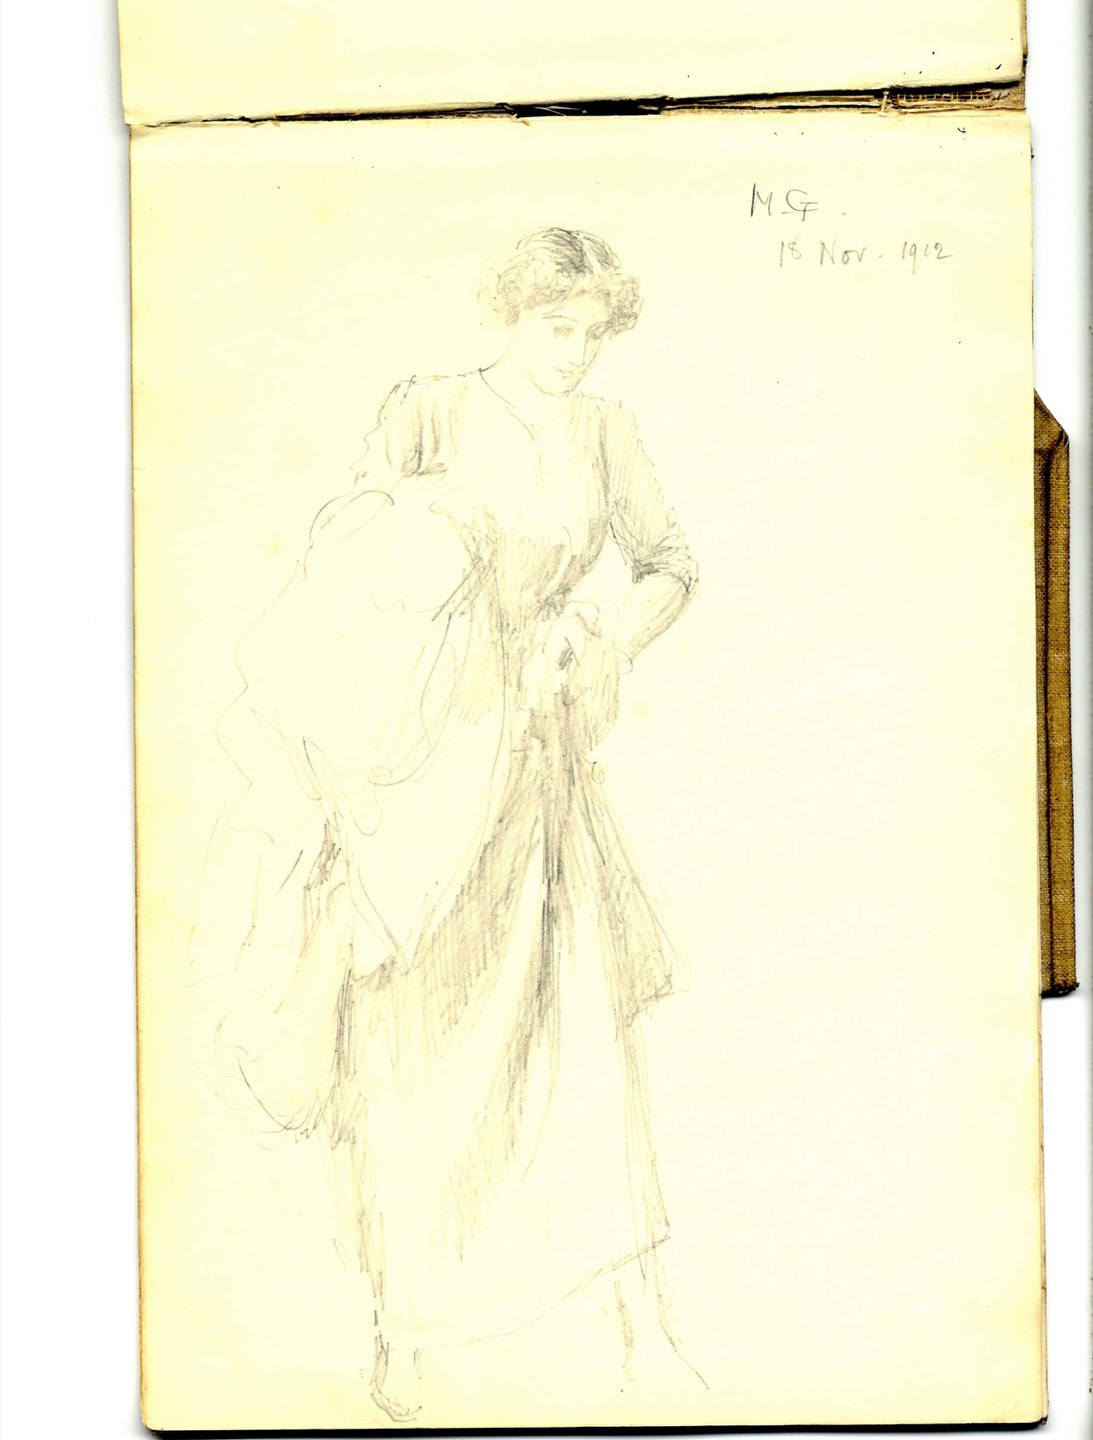 M.G.
18 Nov. 1912